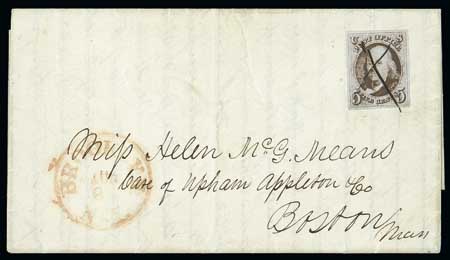 POST OFFICE
5 5
Miſs Helen McG. Means
Care of Upham Appleton & Co
Boston
Mass